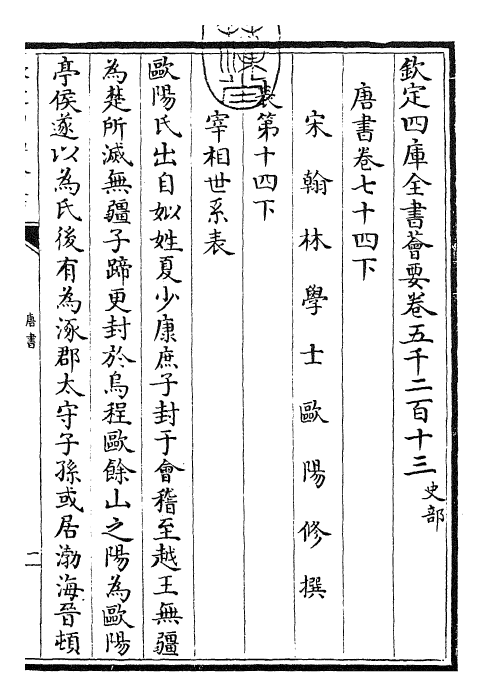 欽定四庫全書薈要卷五千二百十三 史部
唐書卷七十四下
宋翰林學士歐陽修撰
表第十四下
宰相世系表
歐陽氏出自姒姓夏少康庶子封于會稽至越王無疆
為楚所滅無疆子蹄更封於烏程歐餘山之陽為歐陽
亭侯遂以為氏後有為涿郡太守子孫或居渤海晉頓
唐書
一